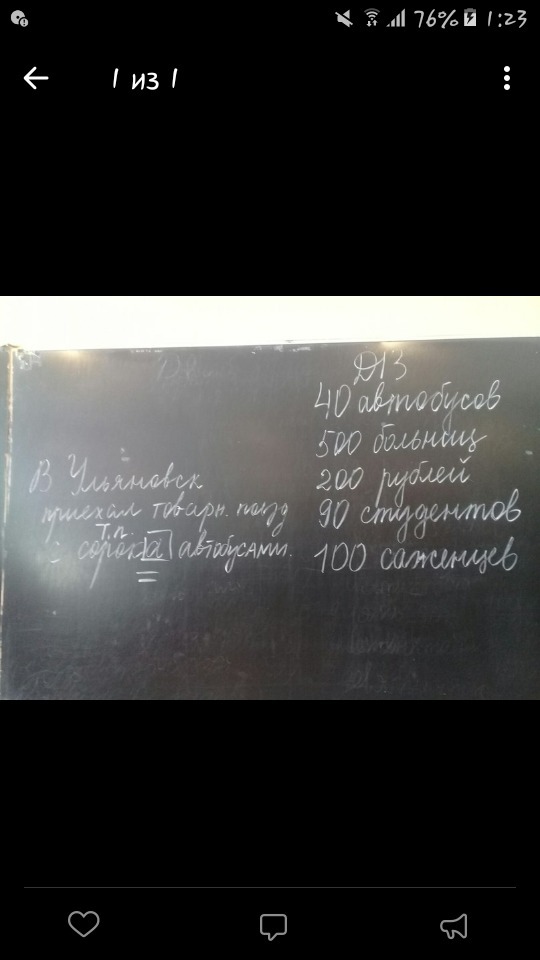 76% 1:23
1 из 1
ДЗ
40 автобусов
500 больниц
200 рублей
90 студентов
100 саженцев
В Ульяновск
приехал товарн. поезд
т.п.
с сорока автобусами.